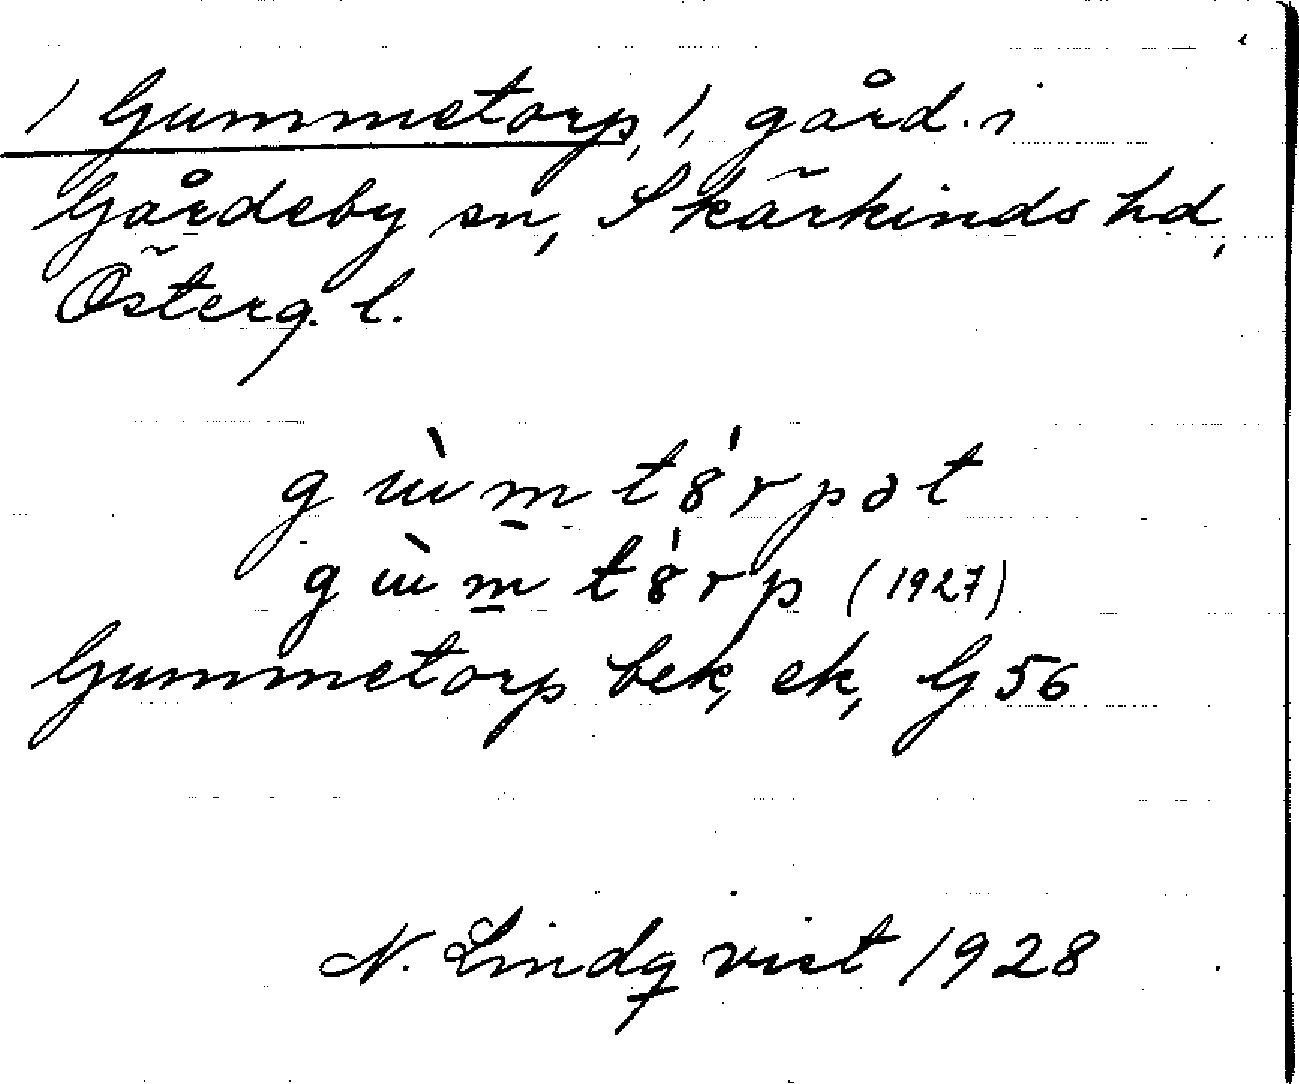 / Gummetorp, /, gård i
Gårdeby sn, Skärkinds hd,
Österg. l.
g ɯ̀ m̱ t 8́ r p ə t
g ɯ̀ m̱ t 8́ r p (1927)
Gummetorp bek, ek, G 56
N. Lindqvist 1928